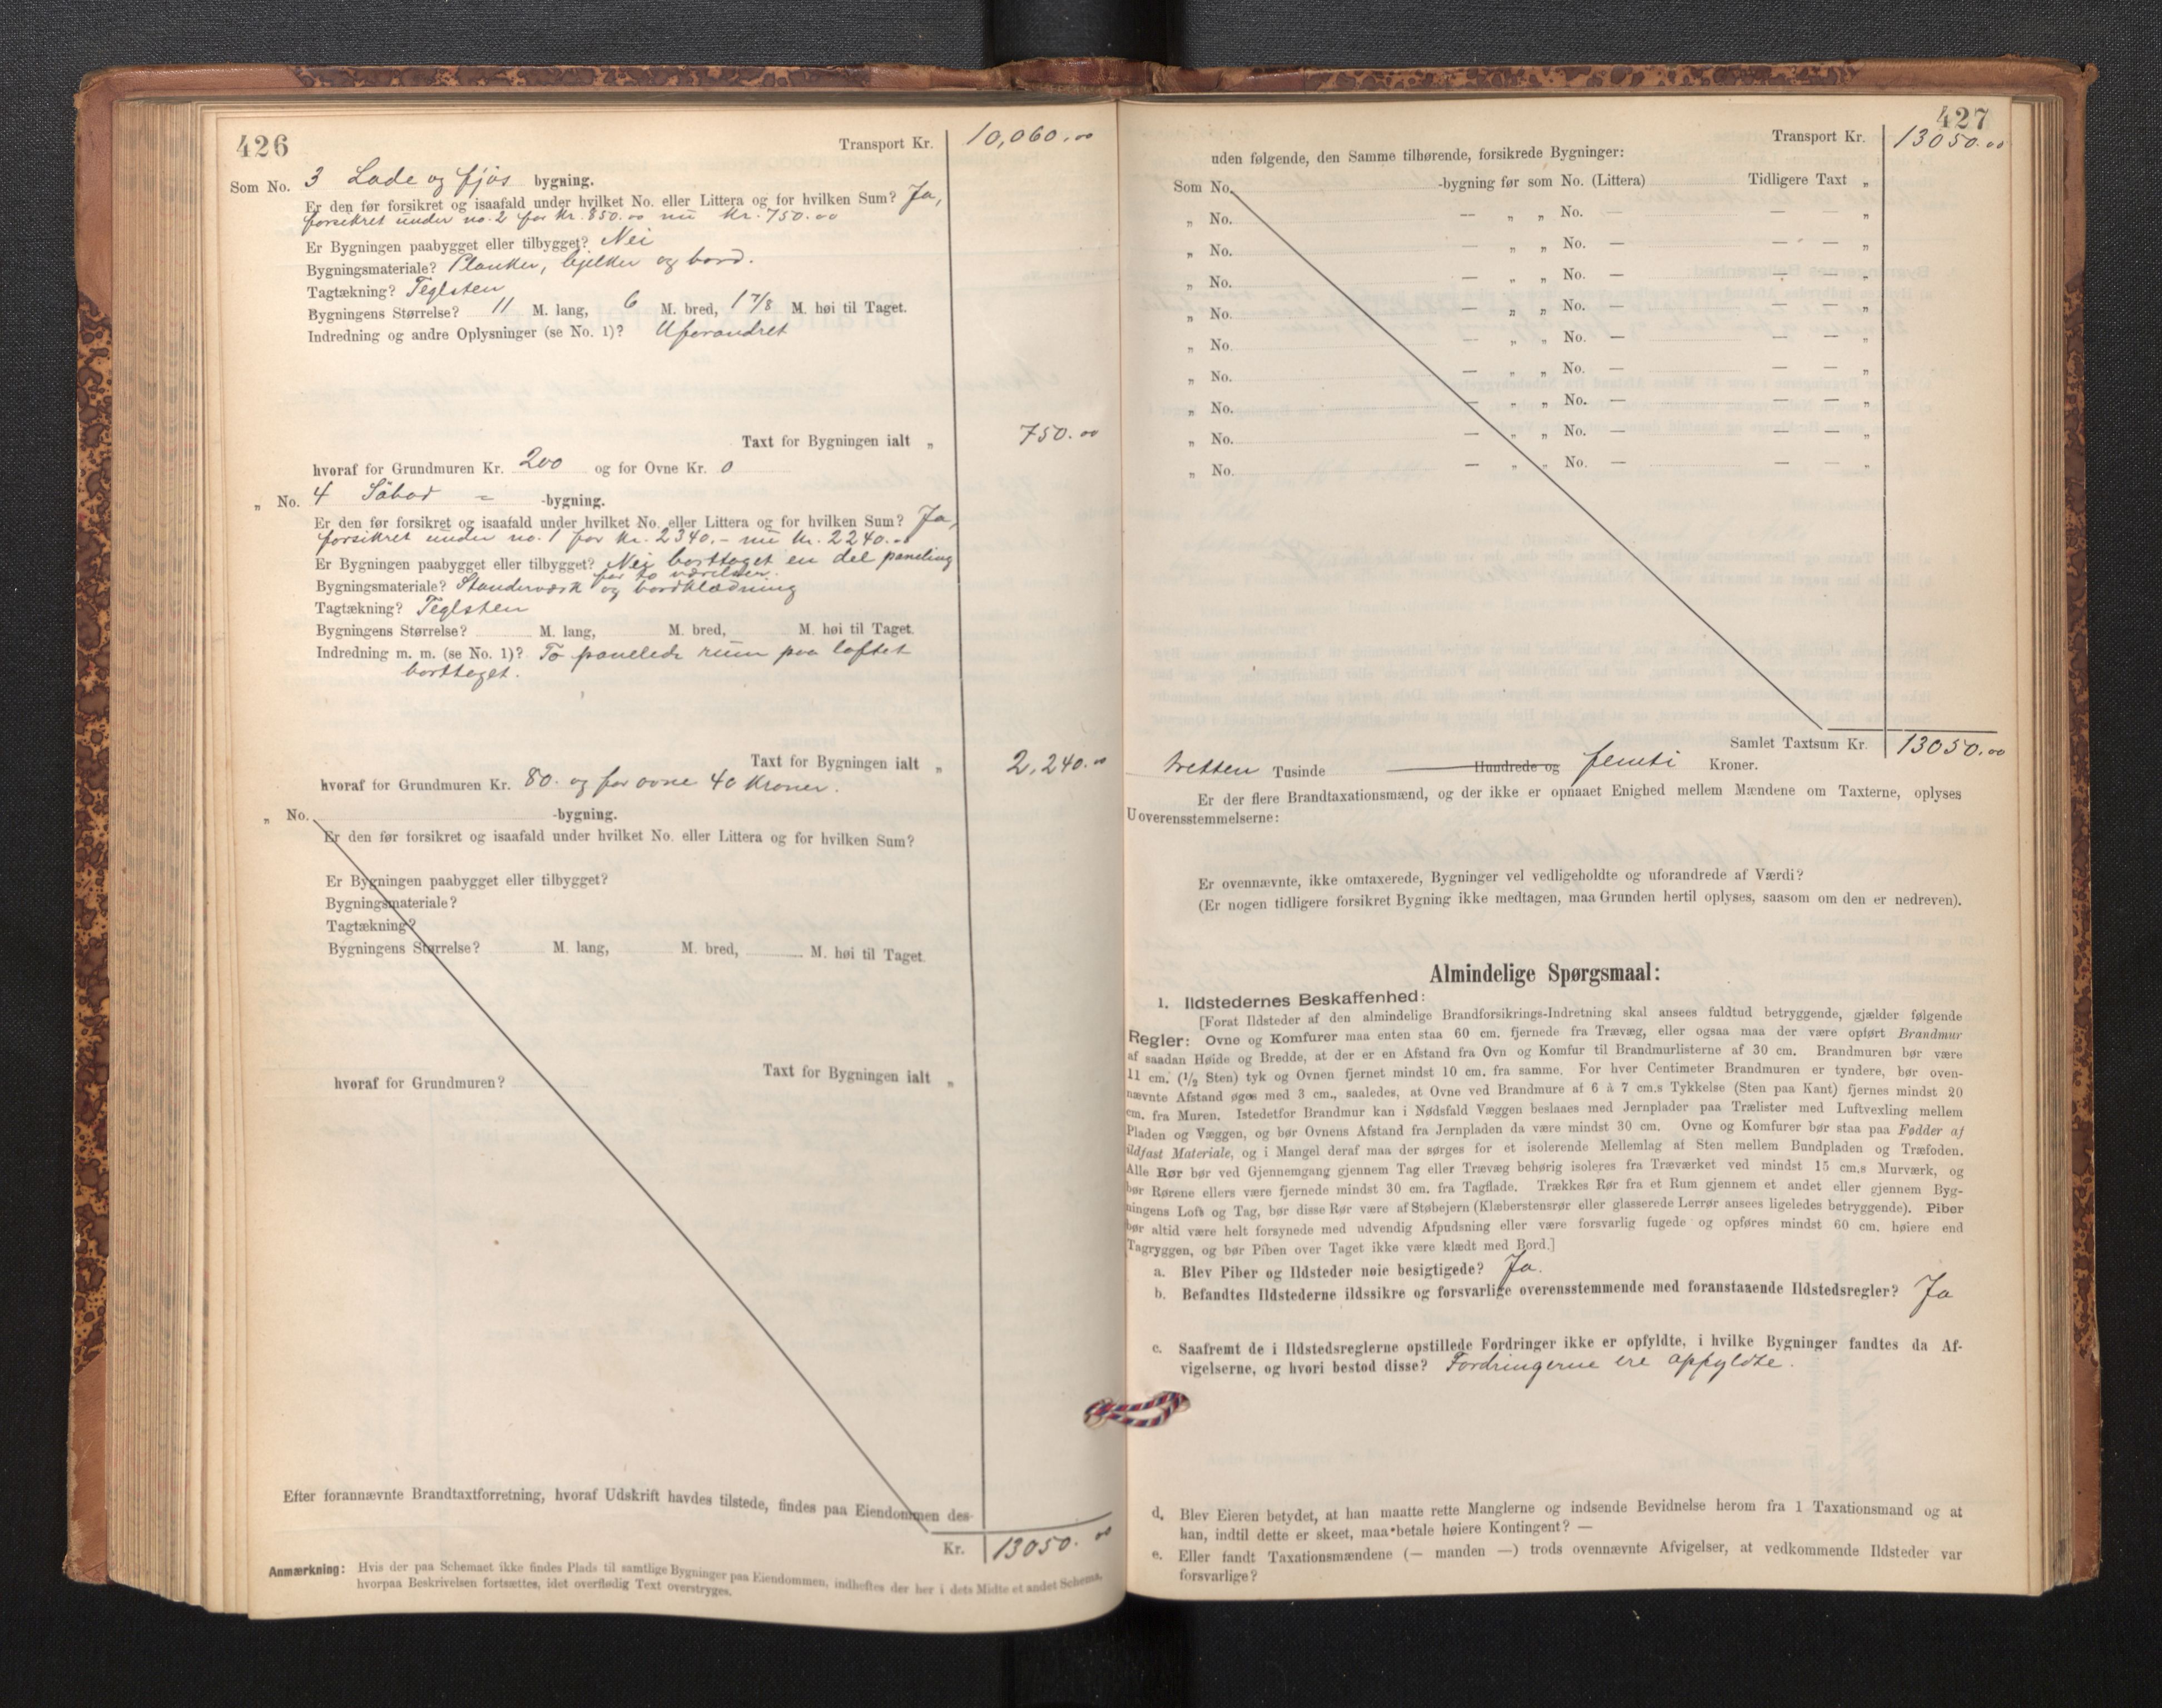 426
Transport Kr. 10,060.00
Som No. 3 Lade og fjøs bygning.
Er den før forsikret og isaafald under hvilket No. eller Littera og for hvilken Sum? Ja,
forsikret under no. 2 for Kr. 850.00 nu Kr. 750.00
Er Bygningen paabygget eller tilbygget? Nei
Bygningsmateriale? Planker, bjelker og bord.
Tagtækning? Teglsten
Bygningens Størrelse? 11 M. lang, 6 M. bred, 1 7/8 M. høi til Taget.
Indredning og andre Oplysninger (se No. 1)? Uforandret
Taxt for Bygningen ialt „ 750.00
hvoraf for Grundmuren Kr. 200 og for Ovne Kr. 0
„ No. 4 Søbod = -bygning.
Er den før forsikret og isaafald under hvilket No. eller Littera og for hvilken Sum? Ja,
forsikret under no. 1 for Kr. 2340.- nu Kr. 2240.00
Er Bygningen paabygget eller tilbygget? Nei borttaget en del paneling
for to værelser.
Bygningsmateriale? Standerværk og bordklædning
Tagtækning? Teglsten
Bygningens Størrelse? M. lang, M. bred, M. høi til Taget.
Indredning m. m. (se No. 1)? To panelede rum paa loftet
borttaget.
Taxt for Bygningen ialt „ 2,240.00
hvoraf for Grundmuren Kr. 80. og for ovne 40 Kroner.
„ No. -bygning.
Er den før forsikret og isaafald under hvilket No. eller Littera og for hvilken Sum?
Er Bygningen paabygget eller tilbygget?
Bygningsmateriale?
Tagtækning?
Bygningens Størrelse? M. lang, M. bred, M. høi til Taget.
Taxt for Bygningen ialt „
hvoraf for Grundmuren?
Efter forannævnte Brandtaxtforretning, hvoraf Udskrift havdes tilstede, findes paa Eiendommen des-
Kr. 13050.00
Anmærkning: Hvis der paa Schemaet ikke findes Plads til samtlige Bygninger paa Eiendommen, indheftes der her i dets Midte et andet Schema,
hvorpaa Beskrivelsen fortsættes, idet overflødig Text overstryges.
427
Transport Kr. 13050.00
uden følgende, den Samme tilhørende, forsikrede Bygninger:
Som No. -bygning før som No. (Littera) Tidligere Taxt „
„ No. — „ „ No. — — — „
„ No. — „ „ No. — — — „
„ No. — „ „ No. — — — „
„ No. — „ „ No. — — — „
„ No. — „ „ No. — — — „
„ No. — „ „ No. — — — „
„ No. — „ „ No. — — — „
„ No. — „ „ No. — — — „
„ No. — „ „ No. — — — „
Samlet Taxtsum Kr. 13050.00
tretten Tusinde Hundrede og femti Kroner.
Er der flere Brandtaxationsmænd, og der ikke er opnaaet Enighed mellem Mændene om Taxterne, oplyses
Uoverensstemmelserne:
Er ovennævnte, ikke omtaxerede, Bygninger vel vedligeholdte og uforandrede af Værdi?
(Er nogen tidligere forsikret Bygning ikke medtagen, maa Grunden hertil oplyses, saasom om den er nedreven).
Almindelige Spørgsmaal:
1. Ildstedernes Beskaffenhed:
[Forat Ildsteder af den almindelige Brandforsikrings-Indretning skal ansees fuldtud betryggende, gjælder følgende
Regler: Ovne og Komfurer maa enten staa 60 cm. fjernede fra Trævæg, eller ogsaa maa der være opført Brandmur
af saadan Høide og Bredde, at der er en Afstand fra Ovn og Komfur til Brandmurlisterne af 30 cm. Brandmuren bør være
11 cm. (1/2 Sten) tyk og Ovnen fjernet mindst 10 cm. fra samme. For hver Centimeter Brandmuren er tyndere, bør oven-
nævnte Afstand øges med 3 cm., saaledes, at Ovne ved Brandmure af 6 à 7 cm.s Tykkelse (Sten paa Kant) fjernes mindst 20
cm. fra Muren. Istedetfor Brandmur kan i Nødsfald Væggen beslaaes med Jernplader paa Trælister med Luftvexling mellem
Pladen og Væggen, og bør Ovnens Afstand fra Jernpladen da være mindst 30 cm. Ovne og Komfurer bør staa paa Fødder af
ildfast Materiale, og i Mangel deraf maa der sørges for et isolerende Mellemlag af Sten mellem Bundpladen og Træfoden.
Alle Rør bør ved Gjennemgang gjennem Tag eller Trævæg behørig isoleres fra Træværket ved mindst 15 cm.s Murværk, og
bør Rørene ellers være fjernede mindst 30 cm. fra Tagflade. Trækkes Rør fra et Rum gjennem et andet eller gjennem Byg-
ningens Loft og Tag, bør disse Rør være af Støbejern (Klæberstensrør eller glasserede Lerrør ansees ligeledes betryggende). Piber
bør altid være helt forsynede med udvendig Afpudsning eller være forsvarlig fugede og opføres mindst 60 cm. høiere end
Tagryggen, og bør Piben over Taget ikke være klædt med Bord.]
a. Blev Piber og Ildsteder nøie besigtigede? Ja.
b. Befandtes Ildstederne ildssikre og forsvarlige overensstemmende med foranstaaende Ildstedsregler? Ja
c. Saafremt de i Ildstedsreglerne opstillede Fordringer ikke er opfyldte, i hvilke Bygninger fandtes da Af-
vigelserne, og hvori bestod disse? Fordringerne ere opfyldte.
d. Blev Eieren betydet, at han maatte rette Manglerne og indsende Bevidnelse herom fra 1 Taxationsmand og at
han, indtil dette er skeet, maa betale høiere Kontingent? —
e. Eller fandt Taxationsmændene (— manden —) trods ovennævnte Afvigelser, at vedkommende Ildsteder var
forsvarlige?